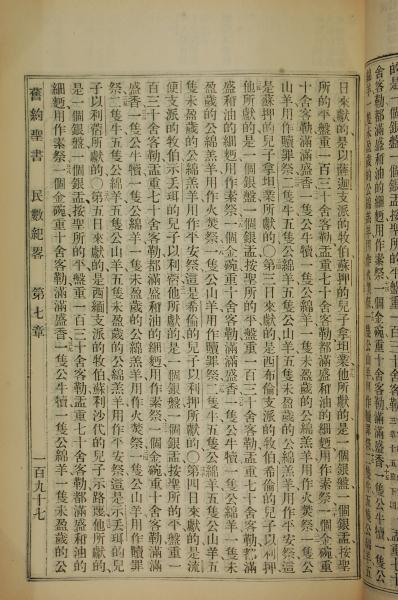 日來獻的、是以薩迦支派的牧伯蘇押的兒子拿坦業、他所獻的是一個銀盤、一個銀盂、按聖
所的平盤重一百三十舍客勒、盂重七十舍客勒、都滿滿盛和油的細麵、用作素祭、一個金碗、重
十舍客勒、滿滿盛香、一隻公牛犢、一隻公綿羊、一隻未盈歲的公綿羔羊、用作火焚祭、一隻公
山羊、用作贖罪祭、二隻牛、五隻公綿羊、五隻公山羊、五隻未盈歲的公綿羔羊、用作平安祭、這
是蘇押的兒子拿坦業所獻的、〇第三日來獻的、是西布倫支派的牧伯希倫的兒子以利押、
他所獻的是一個銀盤、一個銀盂、按聖所的平盤重一百三十舍客勒、盂重七十舍客勒、都滿
盛和油的細麵、用作素祭、一個金碗、重十舍客勒、滿滿盛香、一隻公牛犢、一隻公綿羊、一隻未
盈歲的公綿羔羊、用作火焚祭、一隻公山羊、用作贖罪祭、二隻牛、五隻公綿羊、五隻公山羊、五
隻未盈歲的公綿羔羊、用作平安祭、這是希倫的兒子以利押所獻的、〇第四日來獻的、是流
便支派的牧伯示丟珥的兒子以利蓿、他所獻的是一個銀盤、一個銀盂、按聖所的平盤重一
百三十舍客勒、盂重七十舍客勒、都滿滿盛和油的細麵、用作素祭、一個金碗、重十舍客勒、滿滿
盛香、一隻公牛犢、一隻公綿羊、一隻未盈歲的公綿羔羊、用作火焚祭、一隻公山羊、用作贖罪
祭、二隻牛、五隻公綿羊、五隻公山羊、五隻未盈歲的公綿羔羊、用作平安祭、這是示丟珥的兒
子以利蓿所獻的、〇第五日來獻的、是西緬支派的牧伯蘇利沙代的兒子示路蔑、他所獻的
是一個銀盤、一個銀盂、按聖所的平盤重一百三十舍客勒、盂重七十舍客勒、都滿滿盛和油的
細麵、用作素祭、一個金碗、重十舍客勒、滿滿盛香、一隻公牛犢、一隻公綿羊、一隻未盈歲的公
舊約聖書 民數紀畧 第七章 一百九十七